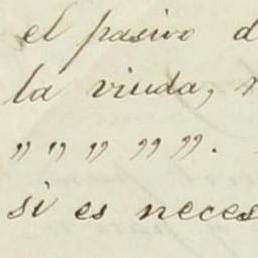 el pasivo d
la viuda,
„ „ „ „ „.
si es neces